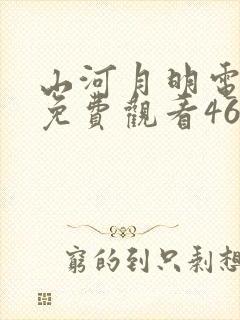 山河月明電
免費觀看46
窮的到只剩想